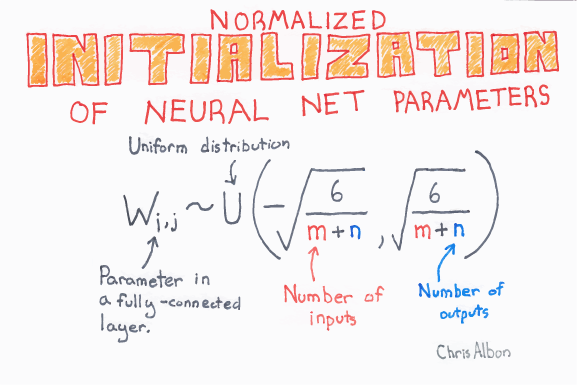 NORMALIZED
INITIALIZATION
OF NEURAL NET PARAMETERS
Uniform distribution
W_{i,j} ~ U(-√(6/(m+n)), √(6/(m+n)))
Parameter in
a fully-connected
layer.
Number of
inputs
Number of
outputs
Chris Albon